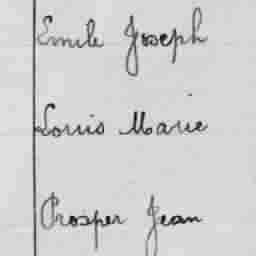 Emile Joseph
Louis Marie
Prosper Jean